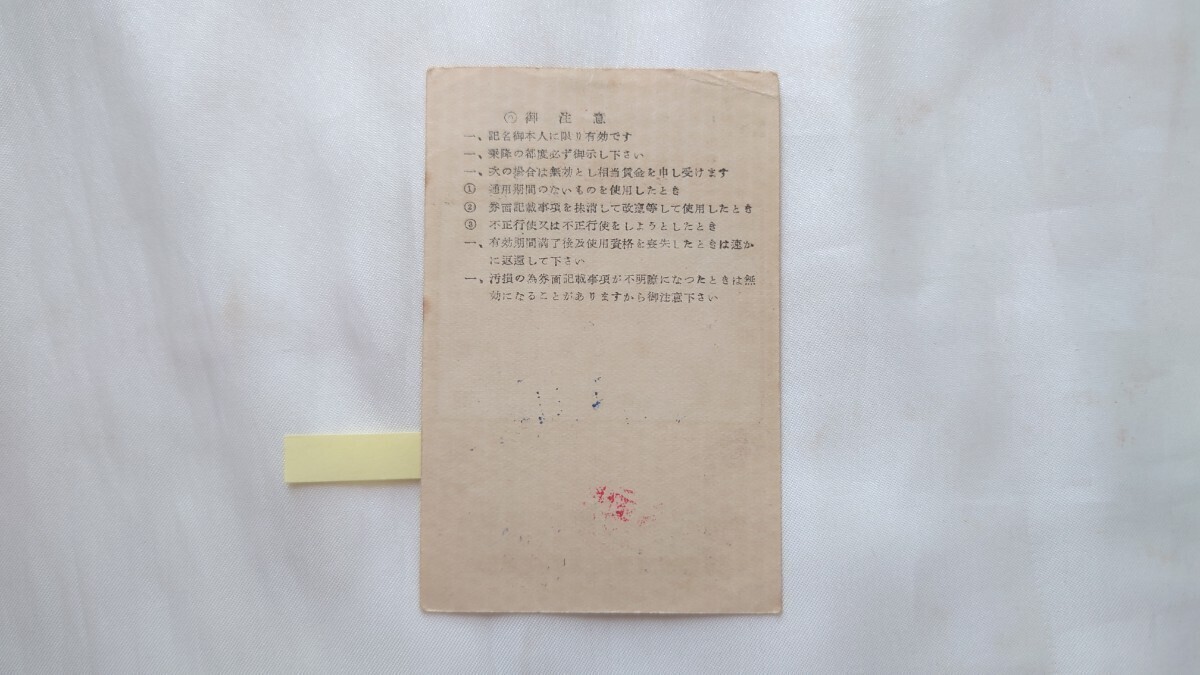 御注意
一、記名御本人に限り有効です
一、乗降の都度必ず御示し下さい
一、次の場合は無効とし相当賃金を申し受けます
① 通用期間のないものを使用したとき
② 券面記載事項を抹消して改竄等して使用したとき
③ 不正行使又は不正行使をしようとしたとき
一、有効期間満了後及使用資格を喪失したときは速か
に返還して下さい
一、汚損の為券面記載事項が不明瞭になつたときは無
効になることがありますから御注意下さい